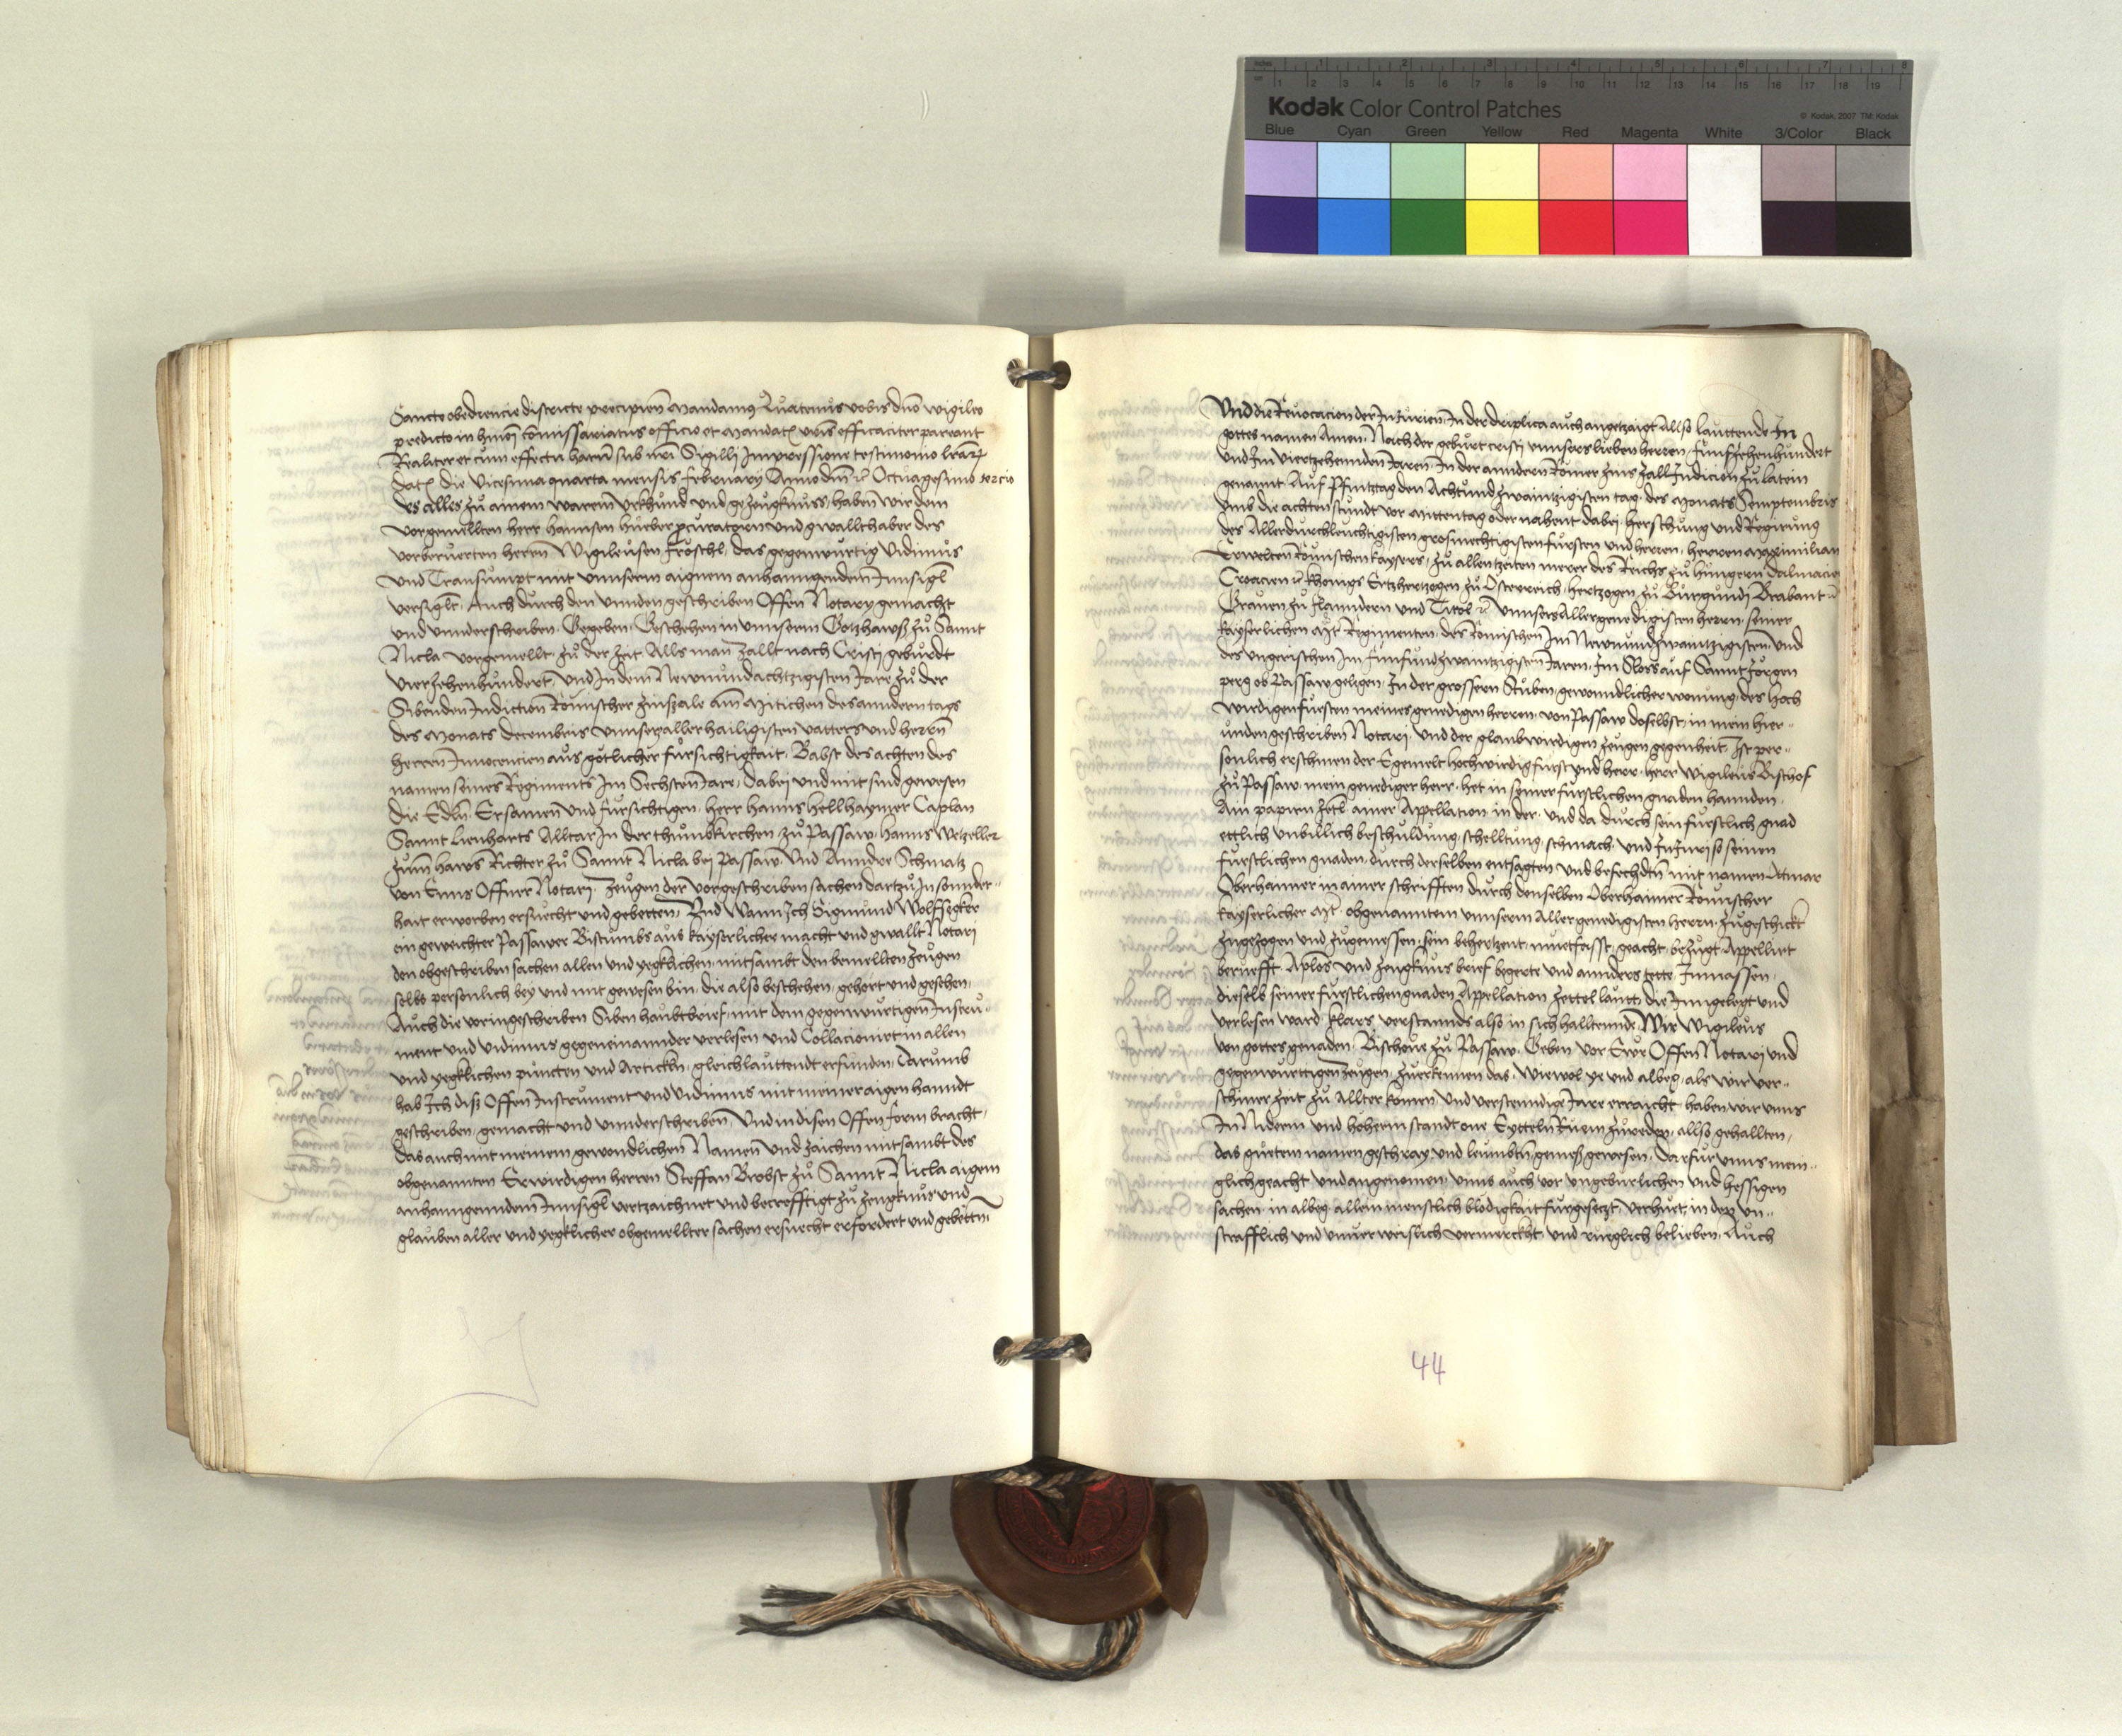 Inches 1 2 3 4 5 6 7 8
cm 1 2 3 4 5 6 7 8 9 10 11 12 13 14 15 16 17 18 19
Kodak Color Control Patches
© Kodak, 2007 TM: Kodak
Blue Cyan Green Yellow Red Magenta White 3/Color Black
Sancte obediencie districte precipien̄ Mandamus Quatenus vobis dn̄o Wigileo
predicto in hm̄oi Com̄issariatus officio et mandatꝭ vr̄is efficaciter pareant
Realiter et cum effectu harum̄ sub nr̄i Sigilli Impressione testimonio lrāꝝ
Datꝭ die Vicesima quarta mensis february Anno dn̄i ꝛc Octuagesimo tercio
des alles zů ainem warem̄ Vrkhund und gezeugknuss, haben wir dem
vorgemellten herr hannsen hůeber ꝓcuratorn und gwallthaber des
vorberuerten herrn Wigileusen Fröschl, das gegenwurtig Vidimůs
und Transumpt mit unnserm aignem anhanngendem Innsigl
versiglt, Auch durch den unnden geschriben Offen Notary gemacht
und unnderschriben. Gegeben, Geschehen in unnserm Gotzhawß zů Sannt
Nicla vorgemellt, zů der zeit Alls man̄ zallt nach Cristj geburdt
vierzehenhundert, und In dem Newnundachtzigisten Jare zů der
Sibenden Indiction Römischer zinszale am̄ Mitichen des anndern tags
des Monats Decembris unnsers allerhailigisten vatters und herrn
herren Innocencien aus götlicher fursichtigkait, Babst des achten des
namen seines Regiments Im Sechsten Jare, Dabei und mit sind gewesen
die Edln, Ersamen und fursichtigen, herr hanns hellhaymer Caplan
Sannt Lienharts Alltar In der thumbkirchen zů Passaw, hanns Wetzeller
zum̄ haws Richter zů Sannt Nicla bei Passaw Und Anndre Schmatz
von Enns Offner Notari, zeugen der vorgeschriben sachen dartzů In sonnder-
hait erworben ersuecht und gebetten, Und Wann Ich Sigmund Wolffegker
ein geweichter Passawer Bistumbs aus kayserlicher macht und gwallt Notari
den obgeschriben sachen allen und yegklichen, mitsambt den bemellten zeugen
selbs personlich bey und mit gewesen bin, die also beschehen, gehört und gesehen,
Auch die voringeschriben Siben haubtbrief, mit dem gegenwurtigen Instru-
ment und Vidimus gegeneinannder verlesen und Collacionirt in allen
und yegklichen puncten und Articklen, gleichlauttendt erfunden, Darumb
hab Ich diß Offen Instrument und Vidimus mit meiner aigen hanndt
geschriben, gemacht und unnderschriben, Und in disen Offen form bracht,
das auch mit meinem gewondlichen Namen und zaichen mitsambt des
obgenannten Erwirdigen herren Steffan Brobst zů Sannt Nicla aigem
anhanngenndem Innsigl vertzaichnet und becrefftigt zů zeugknus und
glauben aller und yegklicher obgemellter sachen ersuecht erfordert und gebettn̄
Vnd die Reuocacion der Iniurien, In der driplica auch angetzaigt Allso lauttende In
gottes namen Amen, Nach der geburt cristj unnsers lieben herren funffzehenhundert
und Im viertzehennden Jaren, In der anndern Römer zins zall Indicion zů latein
genannt, Auf Pfintztag den Achtundzwaintzigisten tag, des Monats Semptembris
vmb die achten stundt vor Mittentag oder nahent dabei, herschung und Regirung
des Allerdurchleuchtigisten grosmechtigisten fursten und herren, herren Maximilian
Erwelten Römischen kaysers, zů allen tzeiten merer des Reichs zů hungern Dalmacien
Croacien ꝛc khonigs Ertzhertzogen zů Osterreich, hertzogen zů Burgundj Brabant ꝛc
Grauen zů flanndern und Tirol ꝛc unnsers Allergenedigisten herrn, seiner
kayserlichen Mt Regimenten, des Römischen Im Newnundzwaintzigisten, und
des ungerischen Im funfundzwaintzigisten Jaren, Im Sloss auf Sannt Jörgen
perg ob Passaw gelegen, In der grossern Stuben, gewonndlicher wonung, des hoch
wirdigen fursten meines genedigen herren, von Passaw doselbst, in mein hier-
unden geschriben Notari, und der glaubwirdigen zeugen gegenheit, Ist per-
sonlich erschinen der Egemelt hochwirdig furst und herr, herr Wigileus Bischof
zů Passaw, mein genediger herr, het in seiner furstlichen gnaden hannden,
Ain papiren zetl ainer Appellation in der, und da durch sein furstlich gnad
ettlich unbillich beschuldung, schelltung, schmach, und Iniurj so seinen
furstlichen gnaden, durch derselben entsagten und befechdtn̄ mit namen Atmar
Oberhaimer in ainer schrifften durch denselben Oberhaimer Römischer
kayserlicher Mt, obgenanntem unnserm Aller genedigisten herrn, zugeschickt
zugezogen und zugemessen, sein behertzent, muetfasst, geacht, bezugt, Appellirt
beruefft, Aplos und zeugknus brief begerte und annders tette, Inmassen,
dieselb seiner furstlichen gnaden Appellation zettel lautt, die Inngelegt und
verlesen ward klars verstannds also in sich halltennde, Wir Wigileus
von gottes genaden, Bischoue zů Passaw, Geben vor Ewr Offen Notari und
gegenwurttigen zeugen, zuerkennen das, Wiewol ye und albeg, als wir ver-
schiner zeit zů Allter komen und verstenndige Jare erraicht haben wir unns
Im Nidern und höhern standt one Eytteln Ruem zureden, allso gehallten,
das guetem namen geschray und leumbtn̄ gemeß gewesen, Darfur unns men-
glich geacht und angenomen, unns auch vor ungeburlichen und hessigen
sachen, in albeg allein menschlich blödigkait furgesetzt, verhuet, in den un-
strafflich und unuerweislich vermerckht, und rueglich beliben, Auch
44